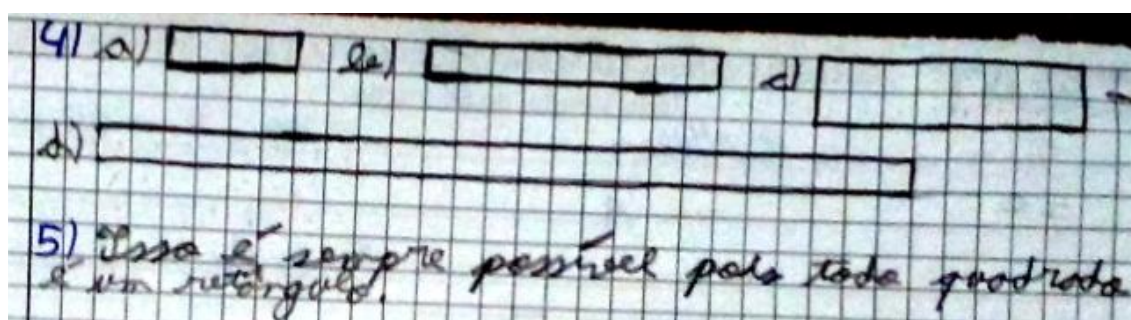 4) a) b) c)
d)
5) Isso é sempre possível pois todo quadrado
é um retângulo.